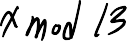 x mod 13